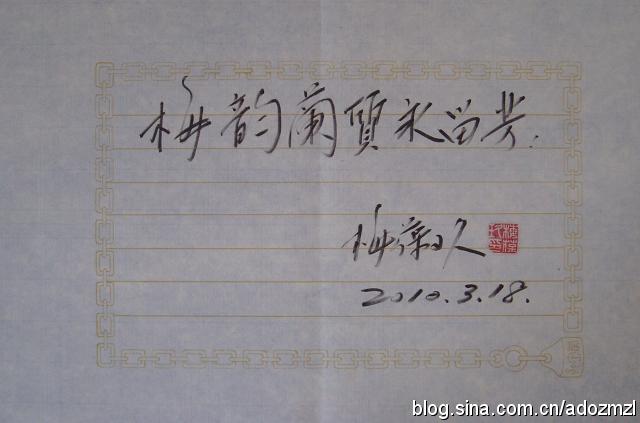 梅韵蘭質永留芳.
梅葆玖
2010.3.18.
blog.sina.com.cn/adozmzl